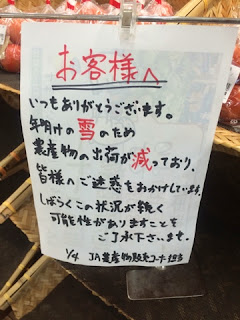 お客様へ
いつもありがとうございます。
年明けの雪のため
農産物の出荷が減っており、
皆様へご迷惑をおかけしています。
しばらくこの状況が続く
可能性がありますことを
ご了承下さいませ。
1/4 JA農産物販売コーナー担当